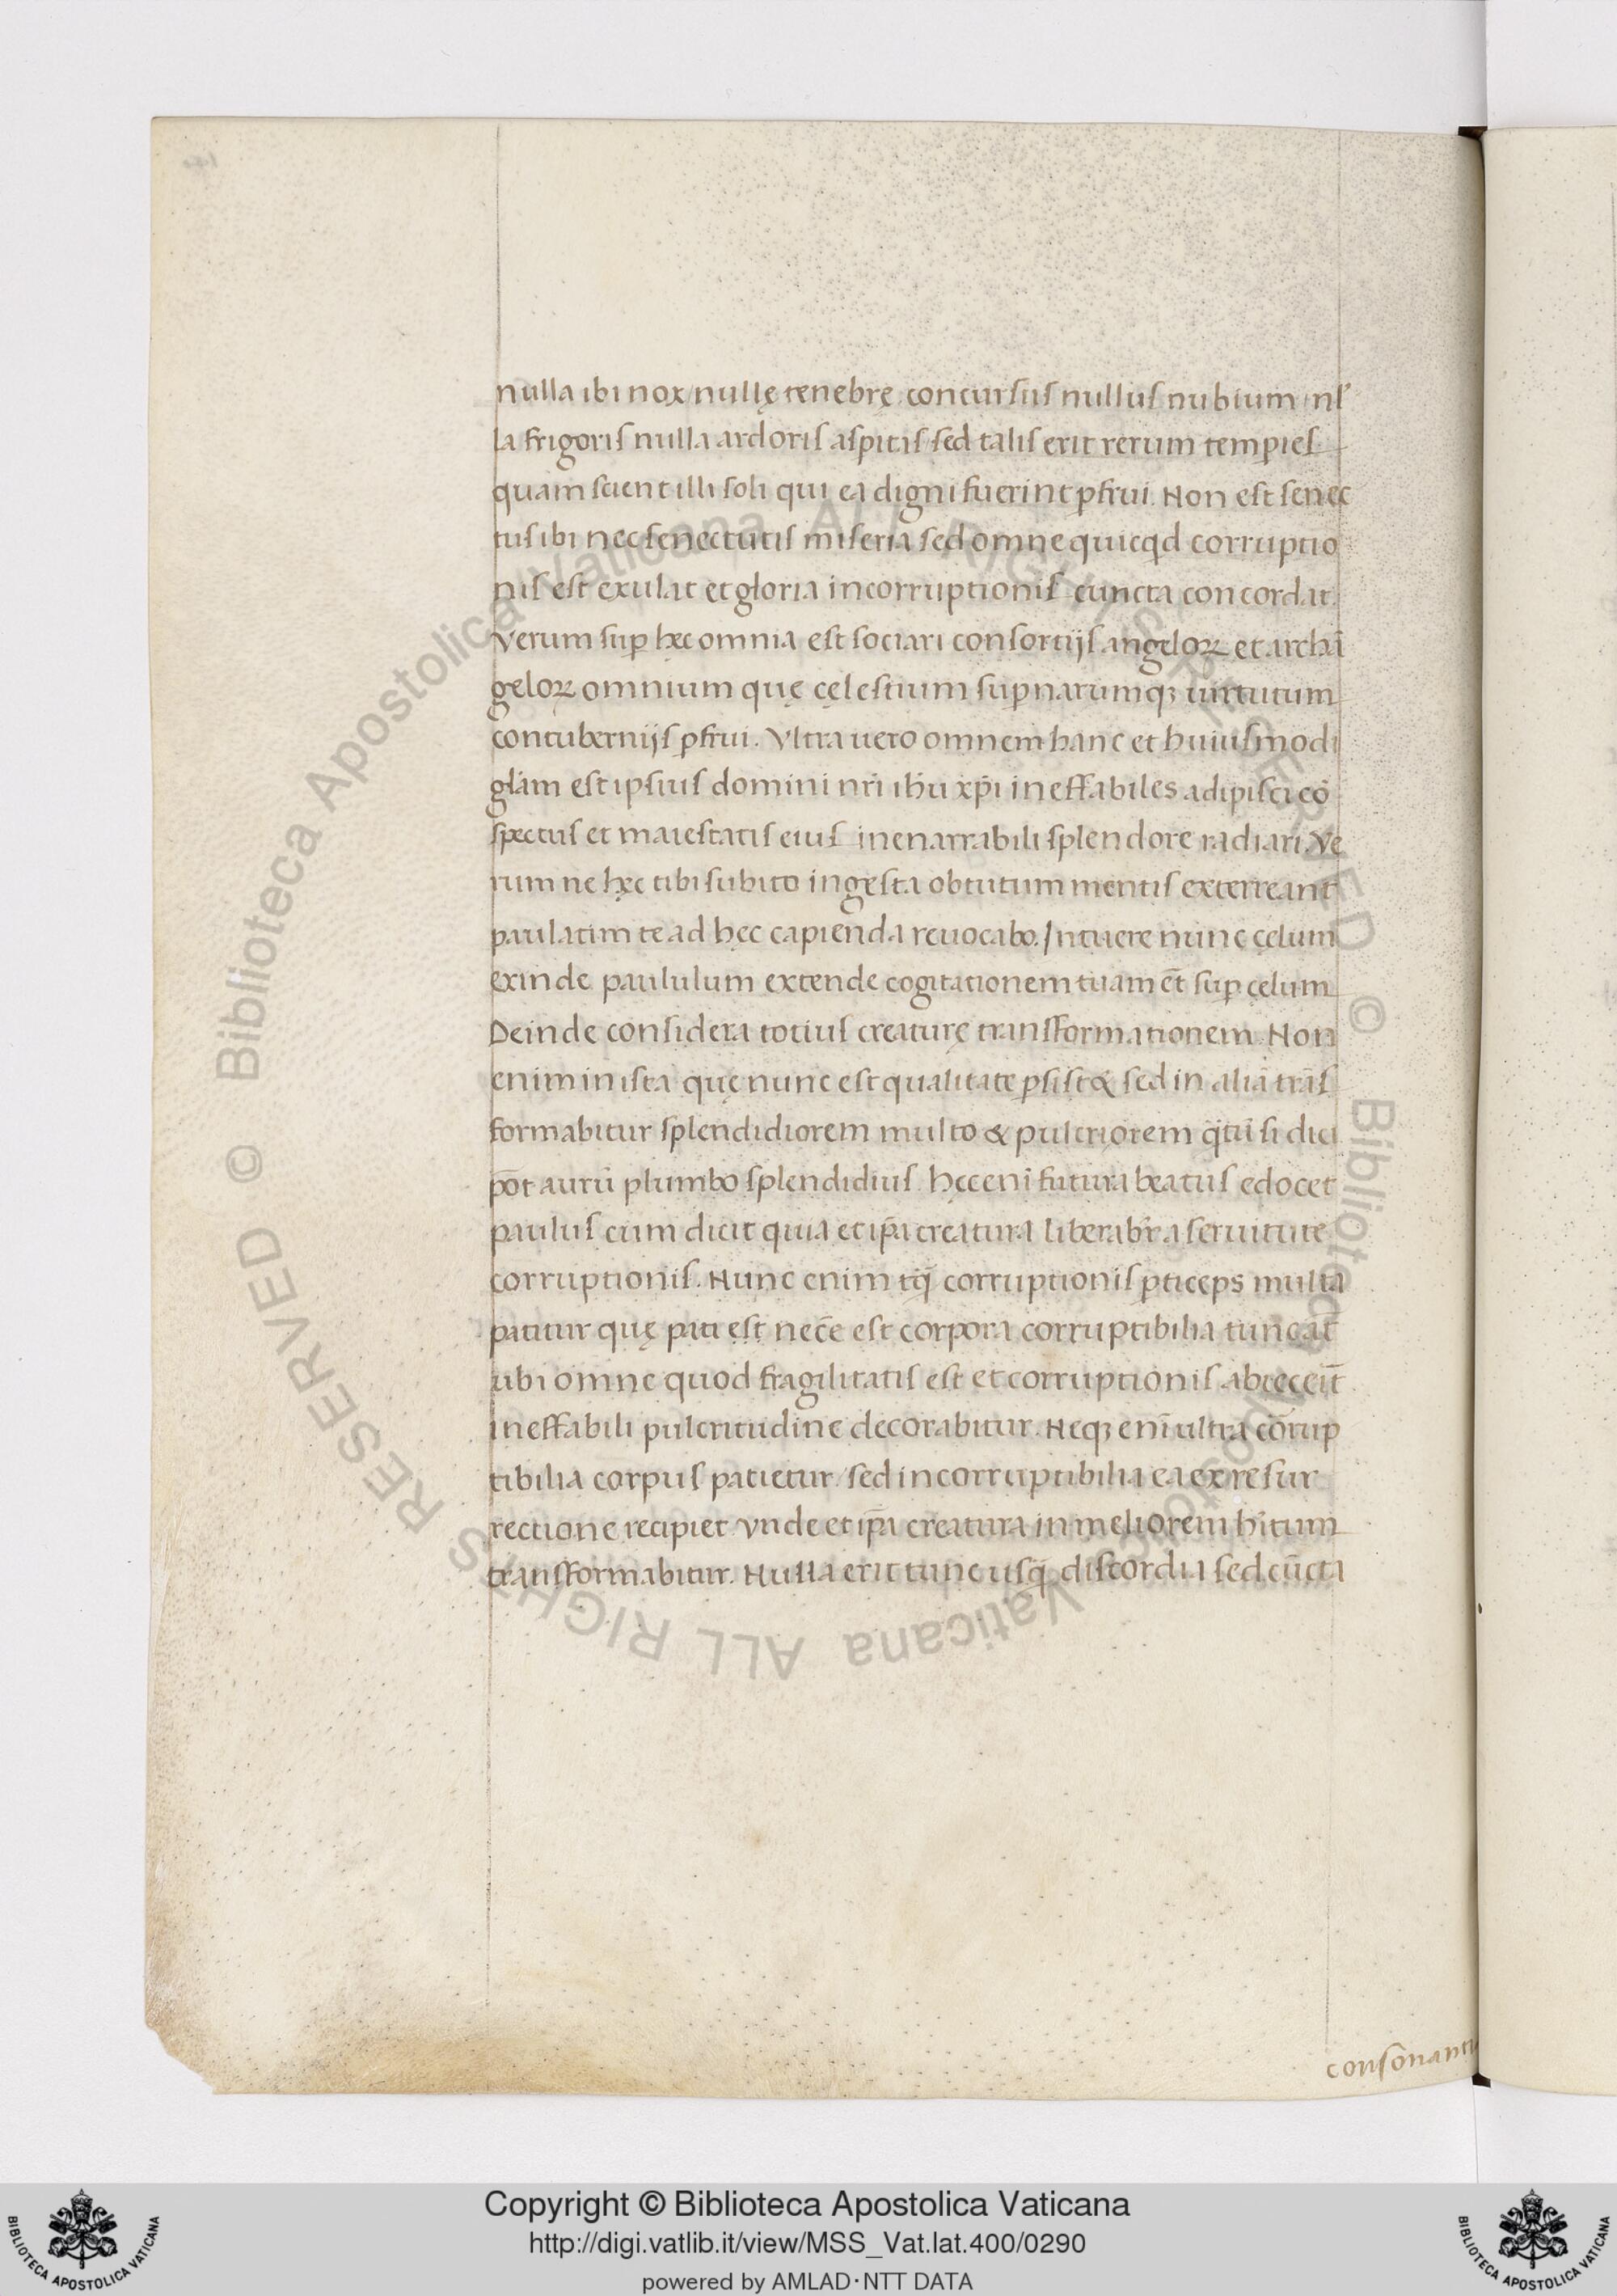 nulla ibi nox / nullę tenebrę concursus nullus nubium / nl̕
la frigoris nulla ardoris aspitis / sed talis erit rerum temꝑies
quam scient illi soli qui ea digni fuerint ꝑfrui. Non est senec
tus ibi nec senectutis miseria sed omne quicqd corruptio
nis est exulat et gloria incorruptionis cuncta concordat.
Verum suꝑ hęc omnia est sociari consortijs angeloꝝ et archā
geloꝝ omnium quę cęlestium suꝑnarumqꝫ uirtutum
contubernijs ꝑfrui. Vltra uero omnem hanc et huiusmodi
glām est ipsius domini nr̄i ihū xp̄i ineffabiles adipisci cō
spectus et maiestatis eius inenarrabili splendore radiari. Ve
rum ne hęc tibi subito ingesta obtutum mentis exterreant
paulatim te ad hęc capienda reuocabo. Intuere nunc cęlum
exinde paululum extende cogitationem tuam et̄ suꝑ cęlum
Deinde considera totius creaturę transformationem. Non
enim in ista quę nunc est qualitate ꝑsist& sed in aliā trās
formabitur splendidiorem multo & pulcriorem q̄tū si dici
pōt aurū plumbo splendidius. hęc enī futura beatus edocet
paulus cum dicit quia et ip̄a creatura liberabr̄ a seruitute
corruptionis. Nunc enim tq̄ corruptionis ꝑticeps multa
patitur quę pati est nec̄e est corpora corruptibilia tunc at̄
ubi omne quod fragilitatis est et corruptionis abieceit̄
ineffabili pulcritudine decorabitur. Neqꝫ enī ultra cōrup
tibilia corpus patietur / sed incorruptibilia ea ex resur
rectione recipiet. Vnde et ip̄a creatura in meliorem hītum
transformabitur. Nulla erit tunc usq̄ discordia sed cūcta
consonanti
© Biblioteca Apostolica Vaticana ALL RIGHTS RESERVED © Biblioteca Apostolica Vaticana ALL RIGHTS RESERVED
Copyright © Biblioteca Apostolica Vaticana
http://digi.vatlib.it/view/MSS_Vat.lat.400/0290
powered by AMLAD·NTT DATA
BIBLIOTECA APOSTOLICA VATICANA
BIBLIOTECA APOSTOLICA VATICANA